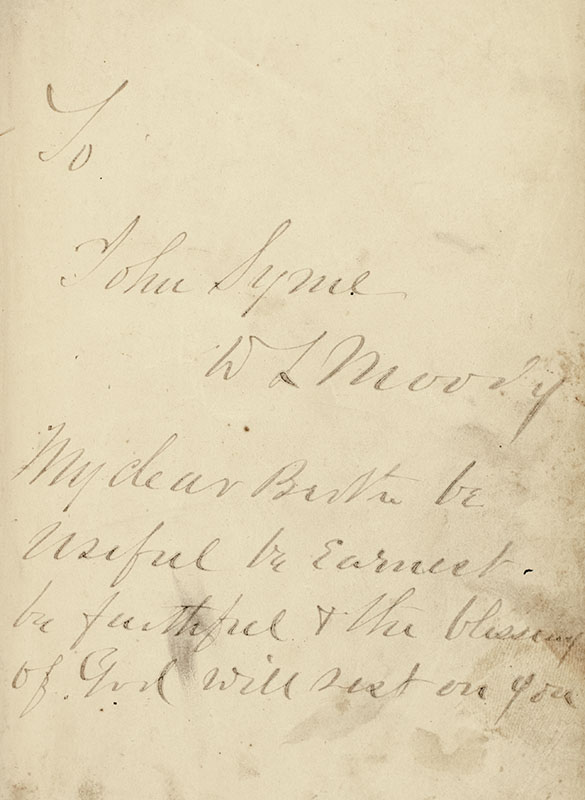 To
John Syme
D L Moody
My dear Brother be
useful be Earnest.
be faithful & the blessing
of God will rest on you